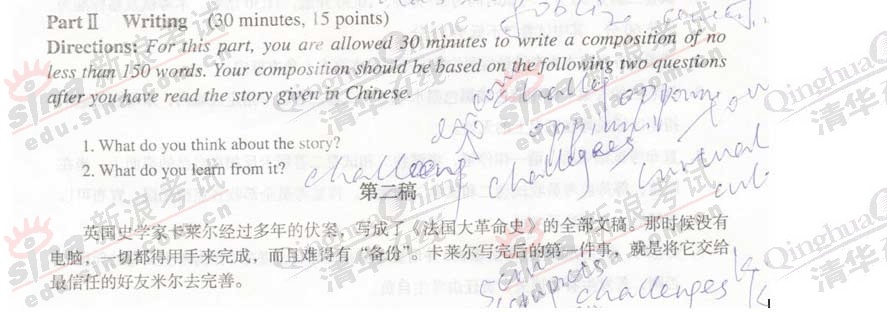 Part Ⅱ Writing (30 minutes, 15 points)
Directions: For this part, you are allowed 30 minutes to write a composition of no
less than 150 words. Your composition should be based on the following two questions
after you have read the story given in Chinese.
1. What do you think about the story?
2. What do you learn from it?
challeeng challegees
第二稿
英国史学家卡莱尔经过多年的伏案，写成了《法国大革命史》的全部文稿。那时候没有
电脑，一切都得用手来完成，而且难得有“备份”。卡莱尔写完后的第一件事，就是将它交给
最信任的好友米尔去完善。
challenges
sina 新浪考试
edu.sina.com.cn
Qinghua
清华